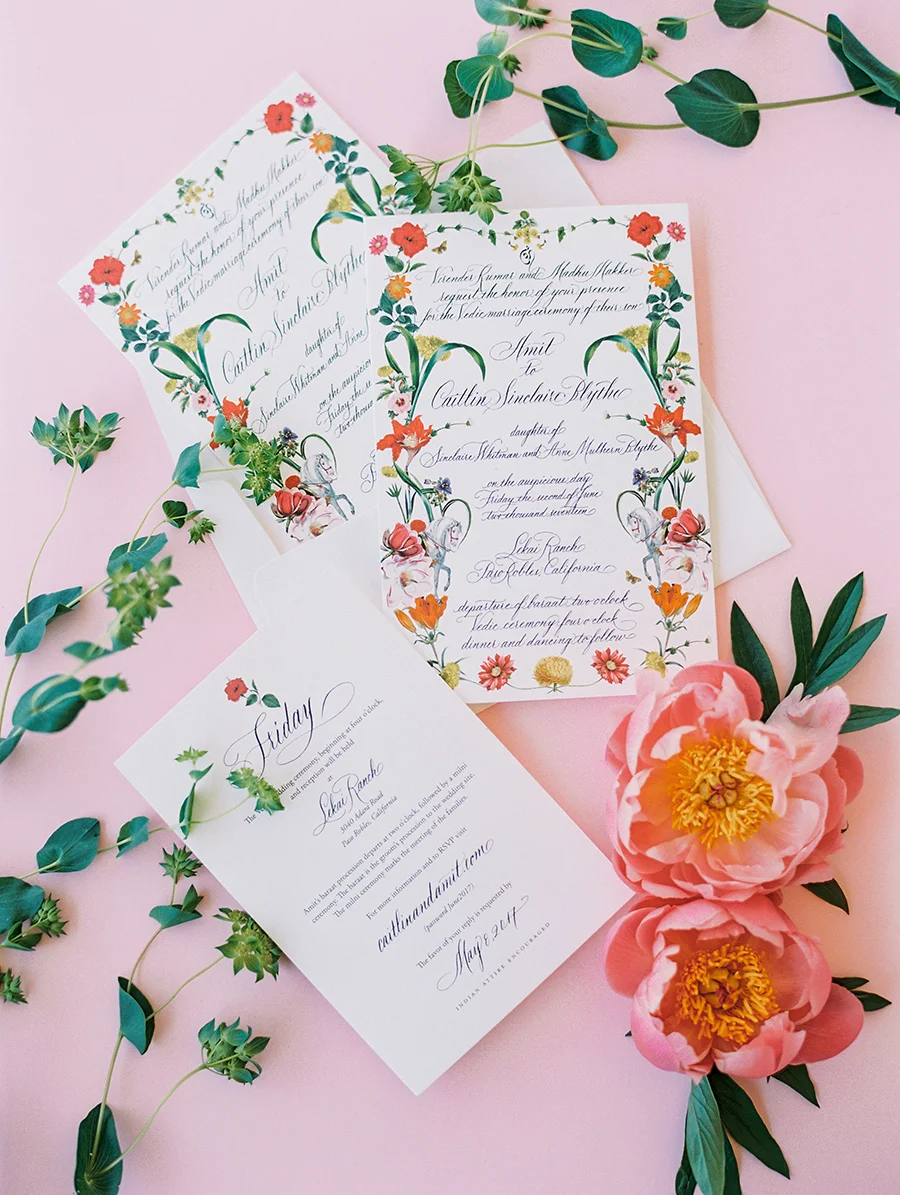 Virender Kumar and Madhu Makker
request the honor of your presence
for the Vedic marriage ceremony of their son
Amit
to
Caitlin Sinclaire Blythe
daughter of
Sinclaire Whitman and Anne
on the auspicious
Friday the
two-thousand
Virender Kumar and Madhu Makker
request the honor of your presence
for the Vedic marriage ceremony of their son
Amit
to
Caitlin Sinclaire Blythe
daughter of
Sinclaire Whitman and Anne Mulhern Blythe
on the auspicious day
Friday the second of June
two thousand seventeen
Lekai Ranch
Paso Robles, California
departure of baraat two o'clock
Vedic ceremony four o'clock
dinner and dancing to follow
Friday
The wedding ceremony, beginning at four o'clock,
and reception will be held
at
Lekai Ranch
3040 Adana Road
Paso Robles, California
Amit's baraat procession departs at two o'clock, followed by a milni
ceremony. The baraat is the groom's procession to the wedding site.
The milni ceremony marks the meeting of the families.
For more information and to RSVP visit
caitlinandamit.com
(password June2017)
The favor of your reply is requested by
May 8, 2017
INDIAN ATTIRE ENCOURAGED